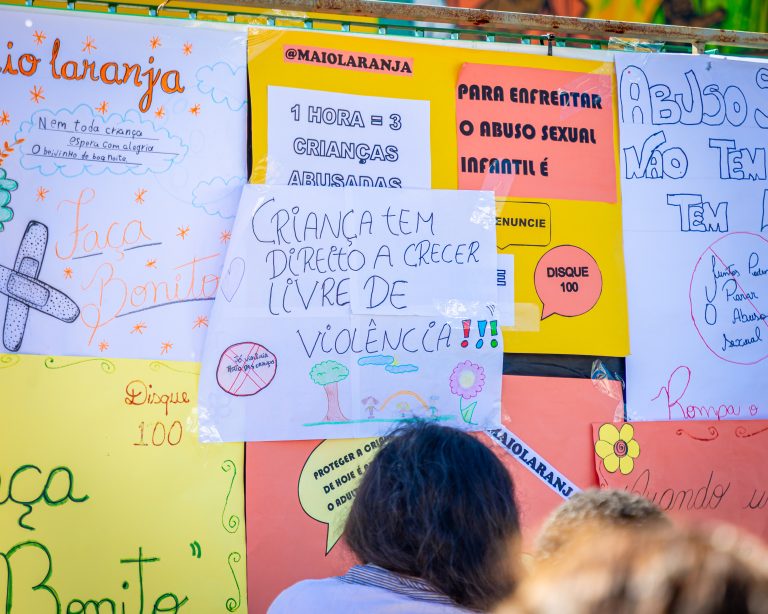 io laranja
Nem toda criança
espera com alegria
O beijinho de boa noite.
Faça
Bonito
@MAIOLARANJA
1 HORA = 3
CRIANÇAS
ABUSADAS
PARA ENFRENTAR
O ABUSO SEXUAL
INFANTIL É
ENUNCIE
DISQUE
100
CRIANÇA TEM
DIREITO A CRECER
LIVRE DE
VIOLÊNCIA!!!
ABUSO S
NÃO TEM
TEM
Juntos Podem
Parar
O Abuso
sexual
Rompa o
Disque
100
aça
Bonito"
PROTEGER A CRIAN
DE HOJE É
O ADUL
MAIOLARANJ
Quando u